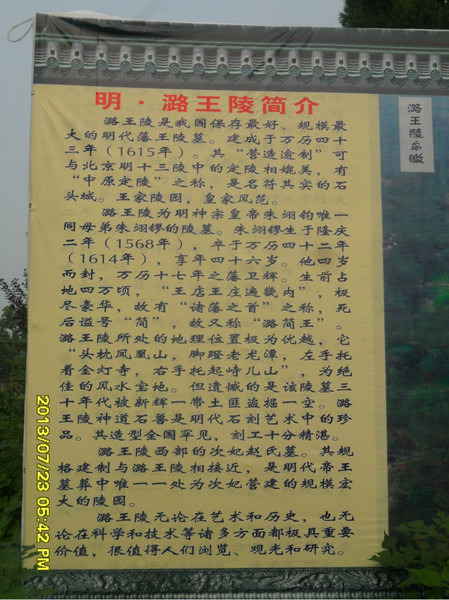 明·潞王陵简介
潞王陵是我国保存最好、规模最
大的明代藩王陵墓。建成于万历四十
三年（1615年）。其“营造逾制”可
与北京明十三陵中的定陵相媲美，有
“中原定陵”之称，是名符其实的石
头城。王家陵园，皇家风范。
潞王陵为明神宗皇帝朱翊钧唯一
同母弟朱翊镠的陵墓。朱翊镠生于隆庆
二年（1568年），卒于万历四十二年
（1614年），享年四十六岁。他四岁
而封，万历十七年之藩卫辉。生前占
地四万顷，“王店王庄遍畿内”，极
尽豪华，故有“诸藩之首”之称，死
后谥号“简”，故又称“潞简王”。
潞王陵所处的地理位置极为优越，它
“头枕凤凰山，脚蹬老龙潭，左手托
着金灯寺，右手托起峙儿山”，为绝
佳的风水宝地。但遗憾的是该陵墓三
十年代被新辉一带土匪盗掘一空。潞
王陵神道石兽是明代石刻艺术中的珍
品。其造型全国罕见，刻工十分精湛。
潞王陵西部的次妃赵氏墓。其规
格建制与潞王陵相接近，是明代帝王
墓葬中唯一一处为次妃营建的规模宏
大的陵园。
潞王陵无论在艺术和历史，也无
论在科学和技术等诸多方面都极具重要
价值，很值得人们浏览、观光和研究。
潞王陵鸟瞰
2013/07/23 05:42 PM